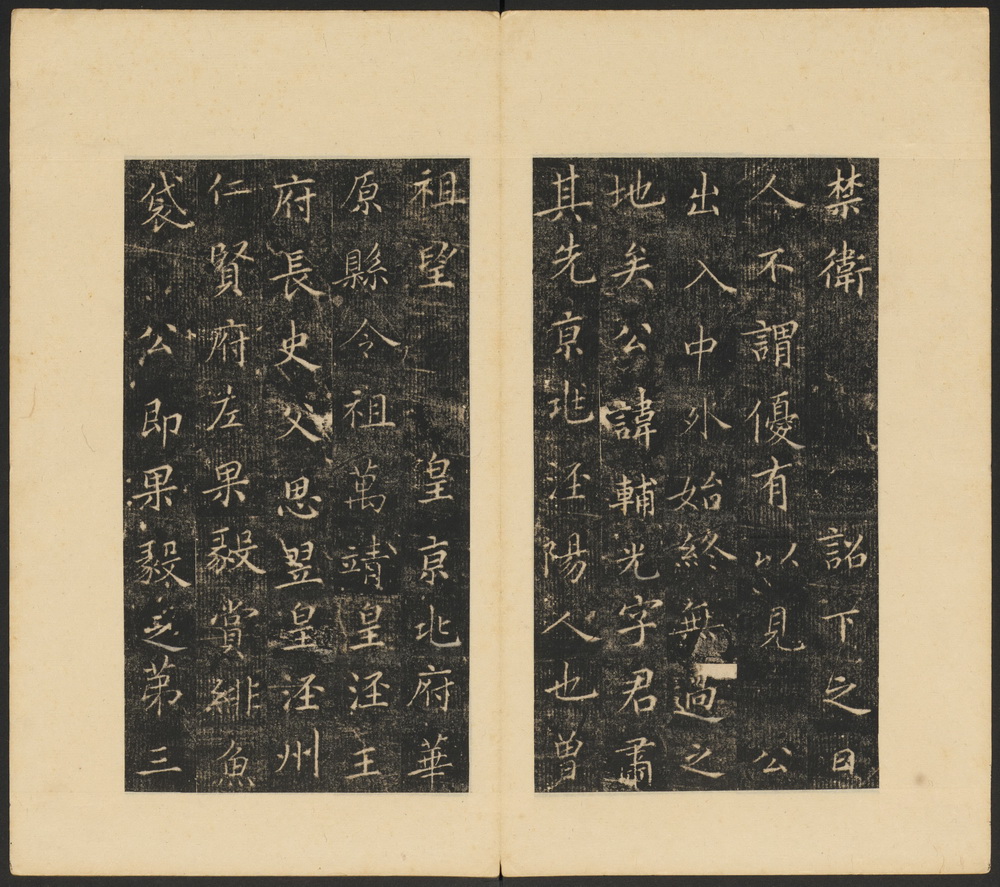 禁衛詔下之日
人不謂優有以見公
出入中外始終無過之
地矣公諱輔光字君肅
其先京兆涇陽人也曾
祖望皇京兆府華
原縣令祖萬靖皇涇王
府長史父思昱皇涇州
仁賢府左果毅賞緋魚
袋公即果毅之第三